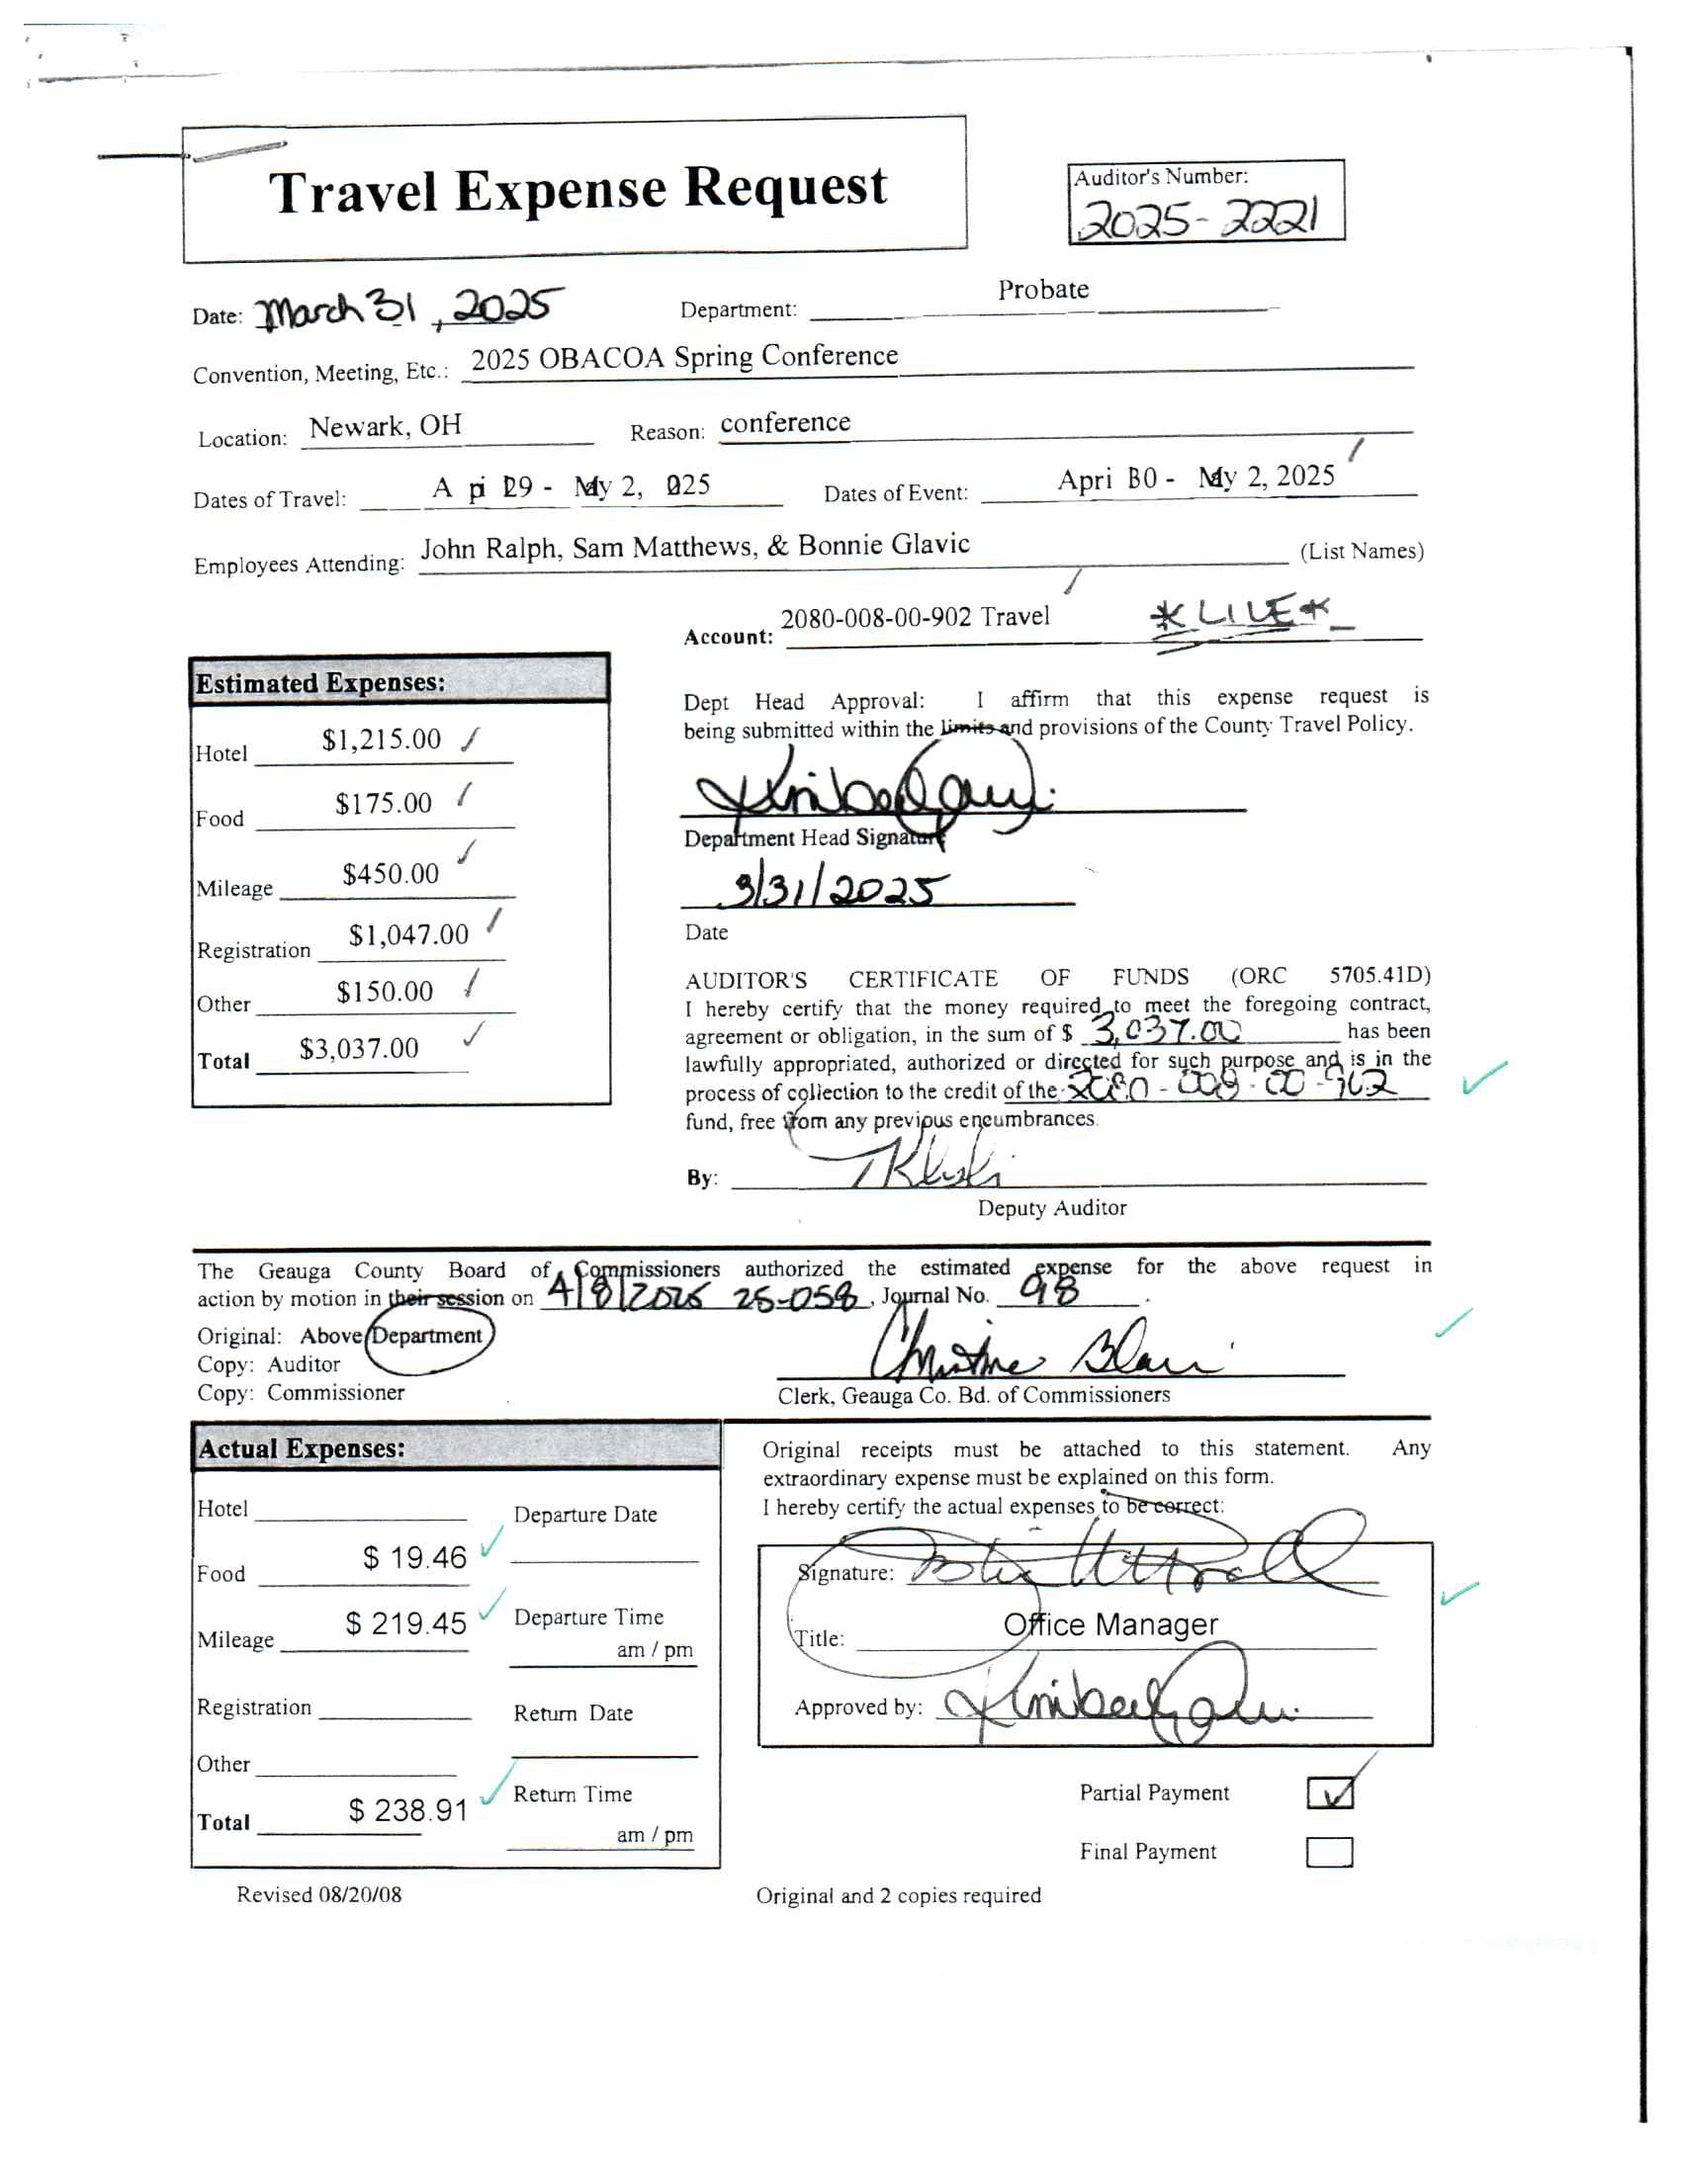 Travel Expense Request
Auditor's Number:
2025-2221
Date: March 31, 2025 Department: Probate
Convention, Meeting, Etc.: 2025 OBACOA Spring Conference
Location: Newark, OH Reason: conference
Dates of Travel: A pi 29 - My 2, 025 Dates of Event: Apri 30 - My 2, 2025
Employees Attending: John Ralph, Sam Matthews, & Bonnie Glavic (List Names)
Account: 2080-008-00-902 Travel
Estimated Expenses:
Hotel $1,215.00
Food $175.00
Mileage $450.00
Registration $1,047.00
Other $150.00
Total $3,037.00
Dept Head Approval: I affirm that this expense request is
being submitted within the limits and provisions of the County Travel Policy.
Department Head Signature
3/31/2025
Date
AUDITOR'S CERTIFICATE OF FUNDS (ORC 5705.41D)
I hereby certify that the money required to meet the foregoing contract,
agreement or obligation, in the sum of $ 3,037.00 has been
lawfully appropriated, authorized or directed for such purpose and is in the
process of collection to the credit of the 2080-008-00-902
fund, free from any previous encumbrances.
By:
Deputy Auditor
The Geauga County Board of Commissioners authorized the estimated expense for the above request in
action by motion in their session on 4/8/2025 25-058, Journal No. 98.
Original: Above Department
Copy: Auditor
Copy: Commissioner
Christine Blair
Clerk, Geauga Co. Bd. of Commissioners
Actual Expenses:
Hotel
Food $ 19.46
Mileage $ 219.45
Registration
Other
Total $ 238.91
Departure Date
Departure Time
am / pm
Return Date
Return Time
am / pm
Original receipts must be attached to this statement. Any
extraordinary expense must be explained on this form.
I hereby certify the actual expenses to be correct:
Signature:
Title: Office Manager
Approved by:
Partial Payment
Final Payment
Revised 08/20/08
Original and 2 copies required